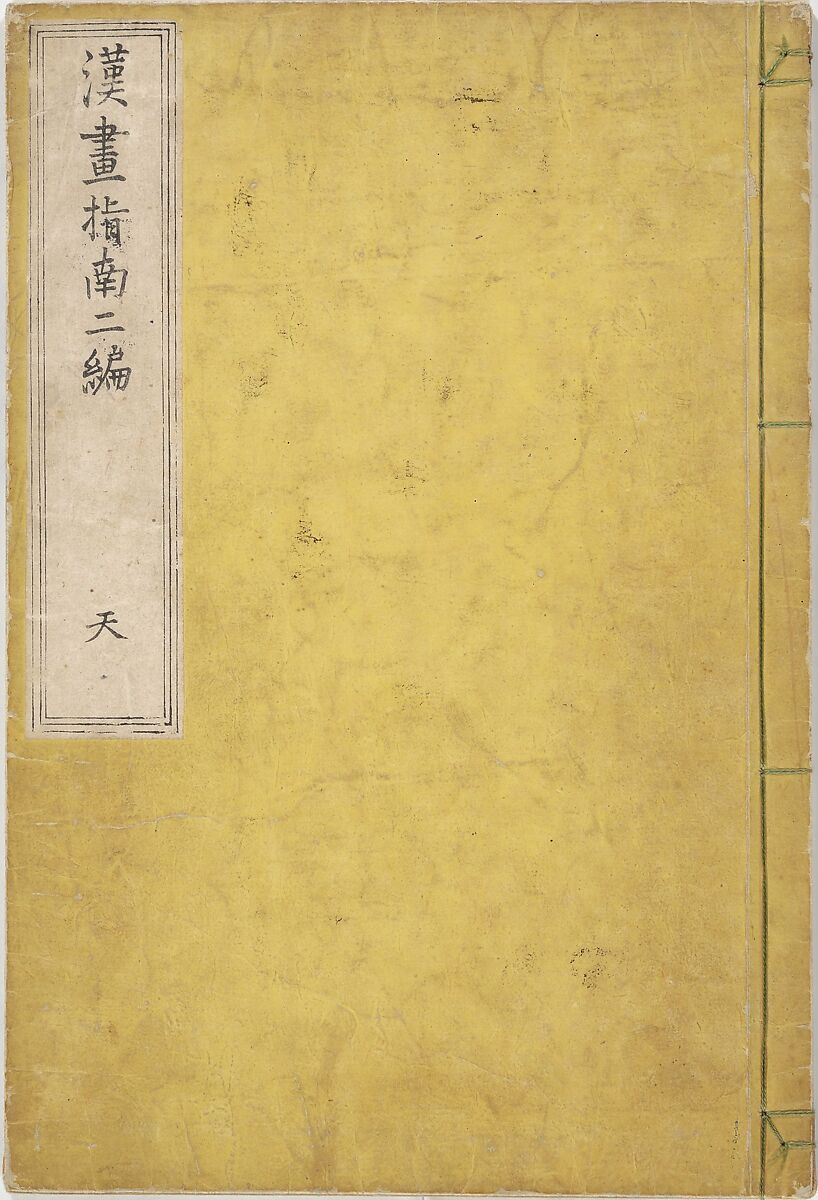 漢畫指南二編
天